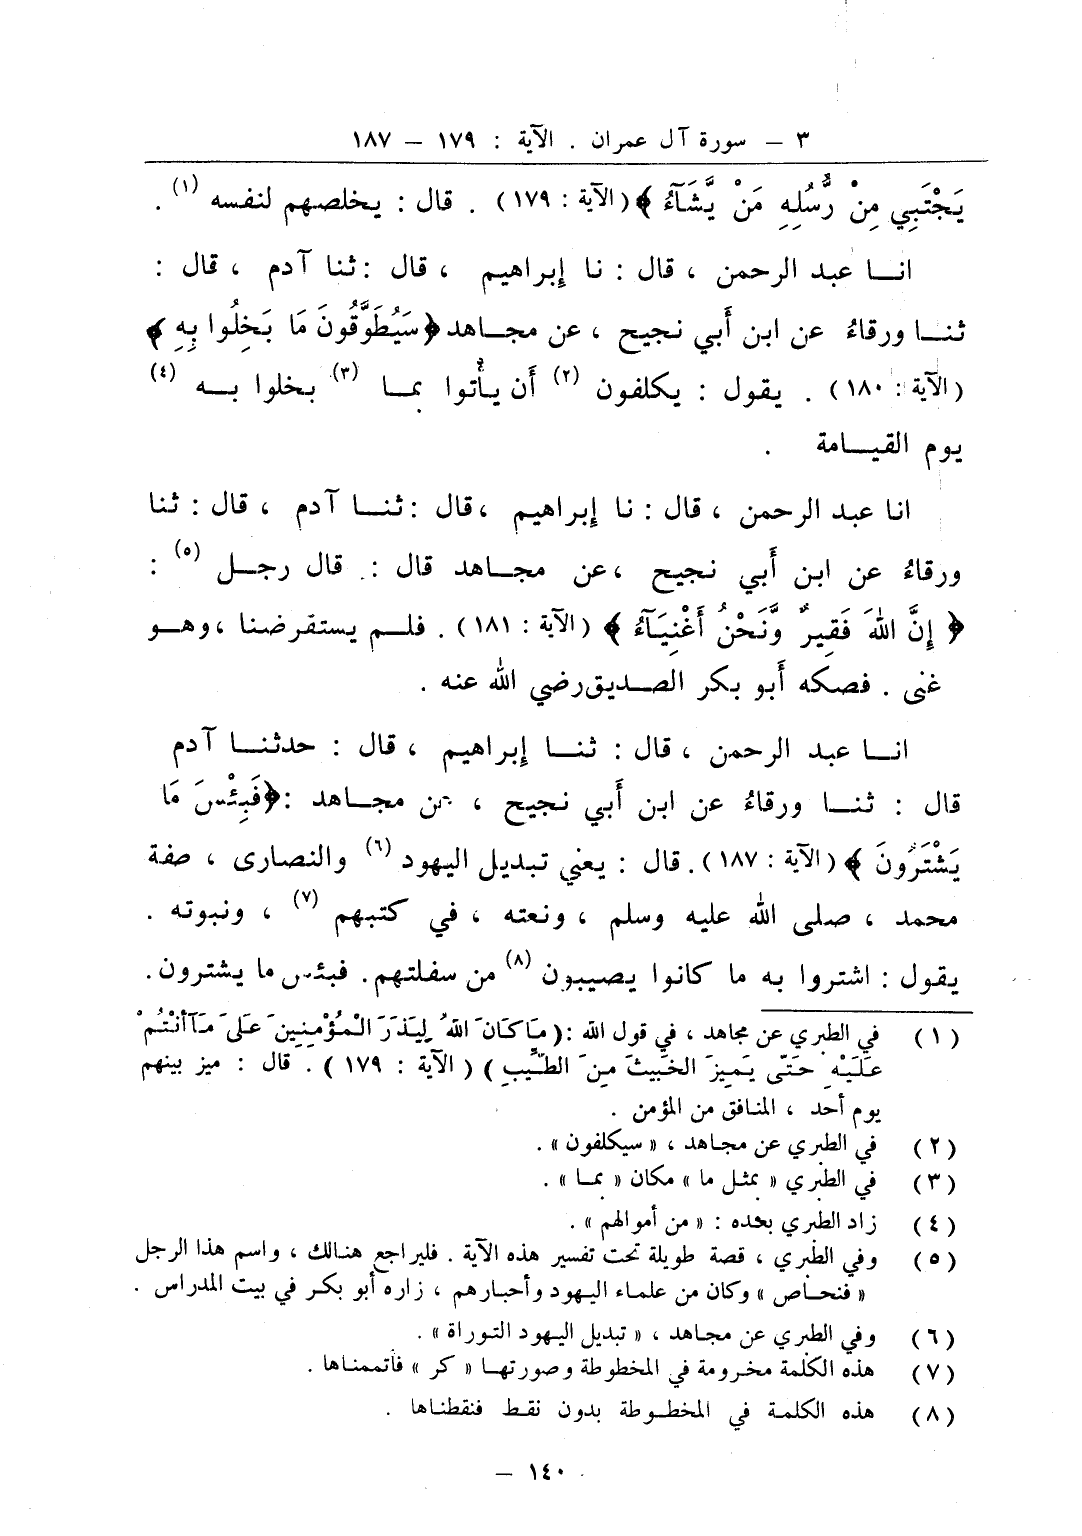 ٣ – سورة آل عمران . الآية : ١٧٩ – ١٨٧
يَجْتَبِي مِنْ رُّسُلِهِ مَنْ يَّشَآءُ ﴾ (الآية : ١٧٩) . قال : يخلصهم لنفسه (١) .
انــا عبد الرحمن ، قال : نا إبراهيم ، قال : ثنا آدم ، قال :
ثنــا ورقاءُ عن ابن أَبي نجيح ، عن مجـاهد ﴿ سَيُطَوَّقُونَ مَا بَخِلُوا بِهِ ﴾
(الآية : ١٨٠) . يقول : يكلفون (٢) أَن يأُتوا بمـا (٣) بخلوا بــه (٤)
يوم القيــامة .
انا عبد الرحمن ، قال : نا إبراهيم ، قال : ثنــا آدم ، قال : ثنا
ورقاءُ عن ابن أَبي نجيح ، عن مجـاهد قال : قال رجــل (٥) :
﴿ إِنَّ اللهَ فَقِيرٌ وَّنَحْنُ أَغْنِيَآءُ ﴾ (الآية : ١٨١) . فلــم يستقرضنا ، وهــو
غنى . فصكه أَبو بكر الصــديق رضي الله عنه .
انــا عبد الرحمن ، قال : ثنــا إبراهيم ، قال : حدثنــا آدم
قال : ثنــا ورقاءُ عن ابن أَبي نجيح ، عن مجـاهد : ﴿ فَبِئْسَ مَا
يَشْتَرُونَ ﴾ (الآية : ١٨٧) . قال : يعني تبديل اليهود (٦) والنصارى ، صفة
محمد ، صلى الله عليه وسلم ، ونعته ، في كتبهم (٧) ، ونبوته .
يقول : اشتروا به ما كانوا يصيبون (٨) من سفلتهم . فبئس ما يشترون .
(١) في الطبري عن مجاهد ، في قول الله : ( مَاكَانَ اللهُ لِيَذَرَ الْمُؤْمِنِينَ عَلَىٰ مَآأَنْتُمْ
عَلَيْهِ حَتَّى يَمِيزَ الخَبِيثَ مِنَ الطَّيِّبِ ) ( الآية : ١٧٩ ) . قال : ميز بينهم
يوم أحد ، المنافق من المؤمن .
(٢) في الطبري عن مجـاهد ، « سيكلفون » .
(٣) في الطبري « بمثـل ما » مكان « بمـا » .
(٤) زاد الطبري بعده : « من أموالهم » .
(٥) وفي الطبري ، قصة طويلة تحت تفسير هذه الآية . فليراجع هنـالك ، واسم هذا الرجل
« فنحـاص » وكان من علمـاء اليهود وأحبارهم ، زاره أبو بكر في بيت المدراس .
(٦) وفي الطبري عن مجـاهد ، « تبديل اليهود التوراة » .
(٧) هذه الكلمة مخرومة في المخطوطة وصورتهـا « كر » فأتممناها .
(٨) هذه الكلمة في المخطوطة بدون نقـط فنقطناها .
١٤٠ –